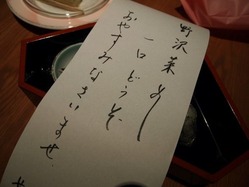 野沢菜めし
一口どうぞ
おやすみなさいませ